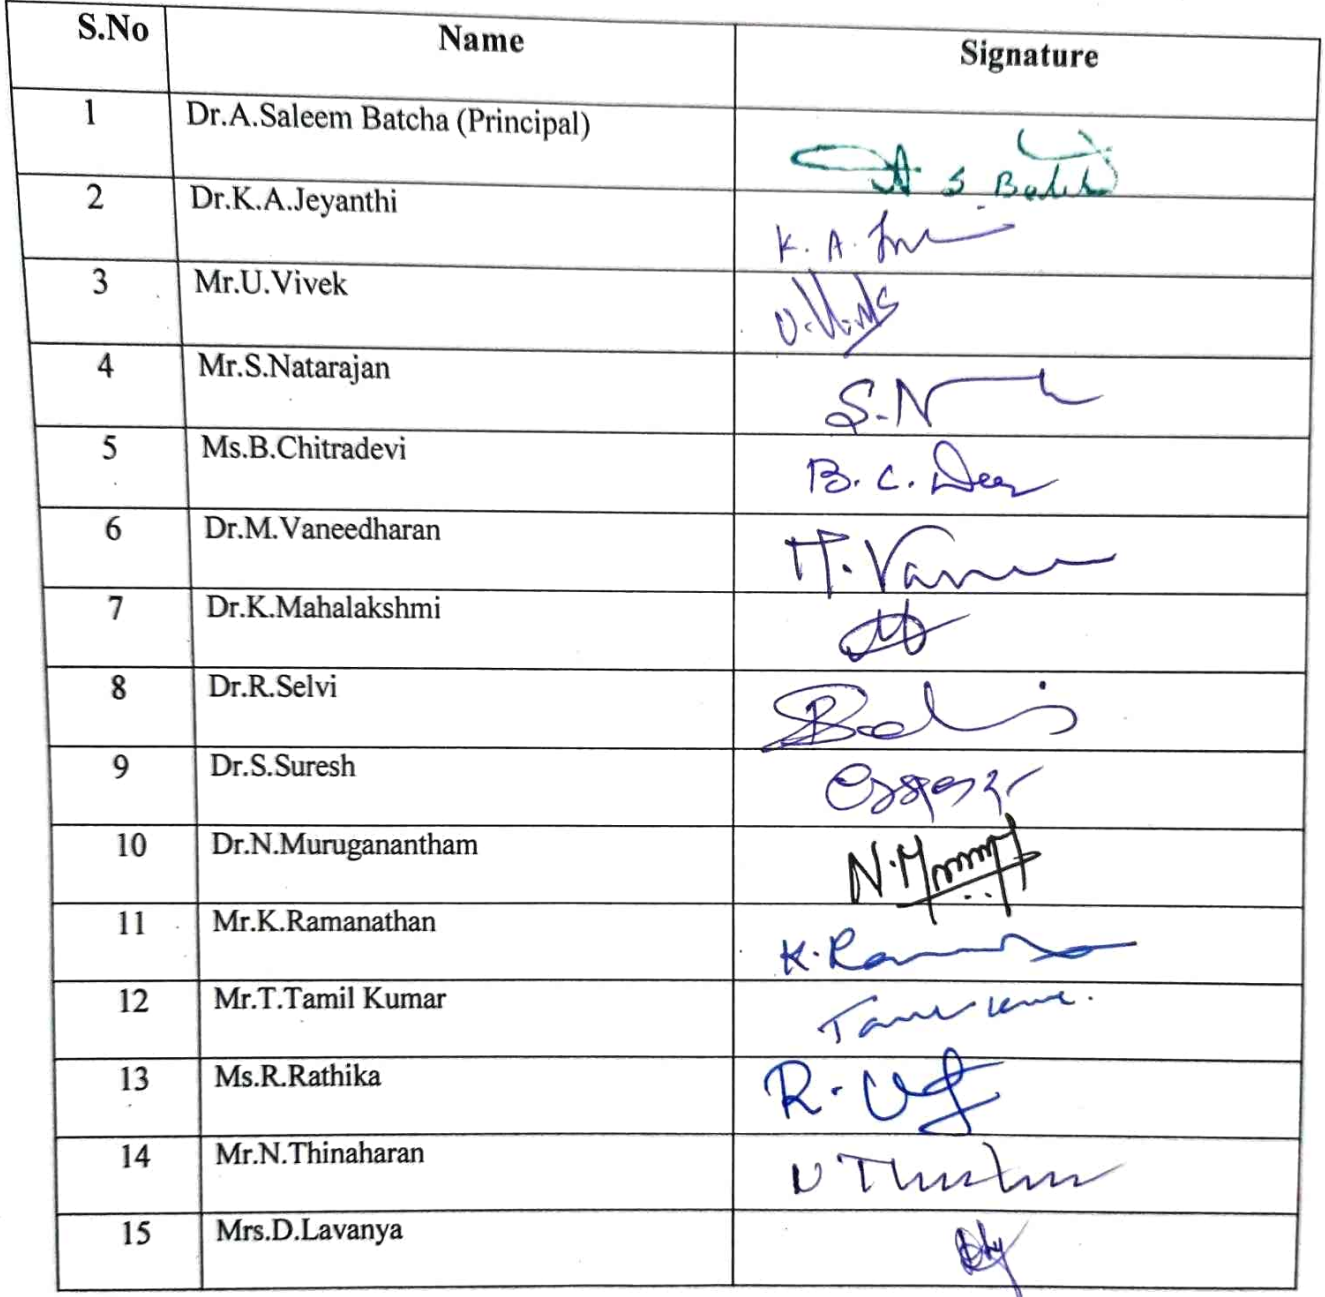 S.No Name Signature
1 Dr.A.Saleem Batcha (Principal) A S Batch
2 Dr.K.A.Jeyanthi K. A.
3 Mr.U.Vivek
4 Mr.S.Natarajan S.N
5 Ms.B.Chitradevi B. C.
6 Dr.M.Vaneedharan M.
7 Dr.K.Mahalakshmi
8 Dr.R.Selvi
9 Dr.S.Suresh
10 Dr.N.Muruganantham N.
11 Mr.K.Ramanathan K.
12 Mr.T.Tamil Kumar
13 Ms.R.Rathika R.
14 Mr.N.Thinaharan N
15 Mrs.D.Lavanya